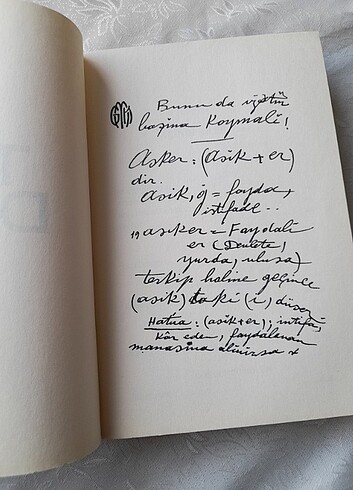 Bunu da üstün
başına koymalı!
Asker: (Asık + er)
dir.
Asık, ğ = fayda,
istifade..
asıker = Faydalı
er (Devlete,
yurda, ulusa)
terkip haline geçince
(asık) taki (ı, düşer
Hatıra: (asık+er); intifa,
kâr eden, faydalanan
manasına alınırsa